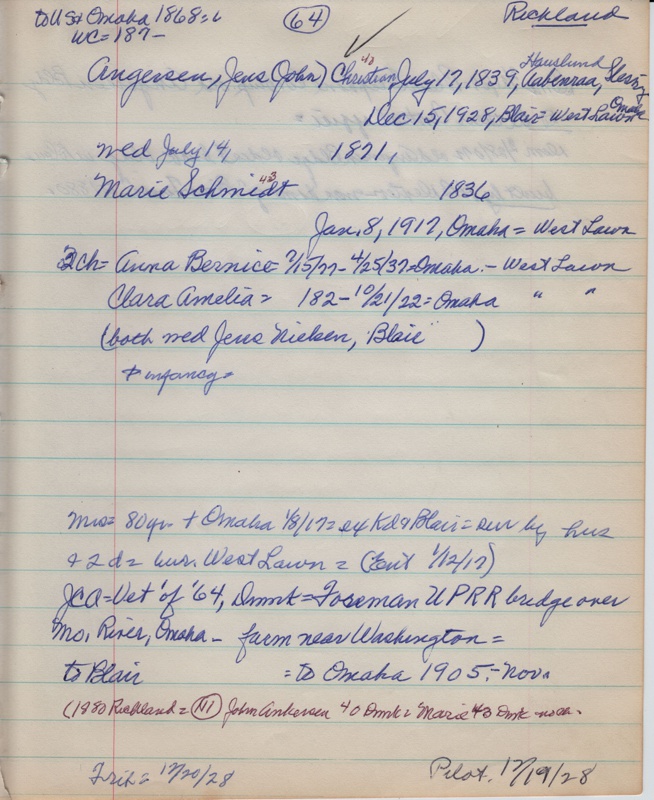 to US + Omaha 1868 =
(64)
Rickland
WC = 187-
Hauslund
Angersen, Jens (John) Christian, July 17, 1839, Aabenraa,
'40
Omaha
Dec 15, 1928, Blair = West Lawn
Wed July 14, 1871
'43
Marie Schmidt 1836
Jan. 8, 1917, Omaha = West Lawn
2ch = Anna Bernice = 7/15/77 - 4/25/37 = Omaha. - West Lawn
Clara Amelia = 182 - 10/21/22 = Omaha " "
(both wed Jens Nielsen, Blair )
+ infancy =
Mrs = 80 yr. + Omaha 1/8/17 = ex Kd & Blair = sur by hus
+ 2 d = bur. West Lawn = (Ent 1/12/17)
JCA = Vet of '64, Dnmk = Foreman UPRR bridge over
Mo. River, Omaha - farm near Washington =
to Blair = to Omaha 1905. - Nov.
(1880 Richland = (111) John Ankersen 40 Dmk = Marie 43 Dmk - no ch.
12/20/28
Pilot. 12/19/28